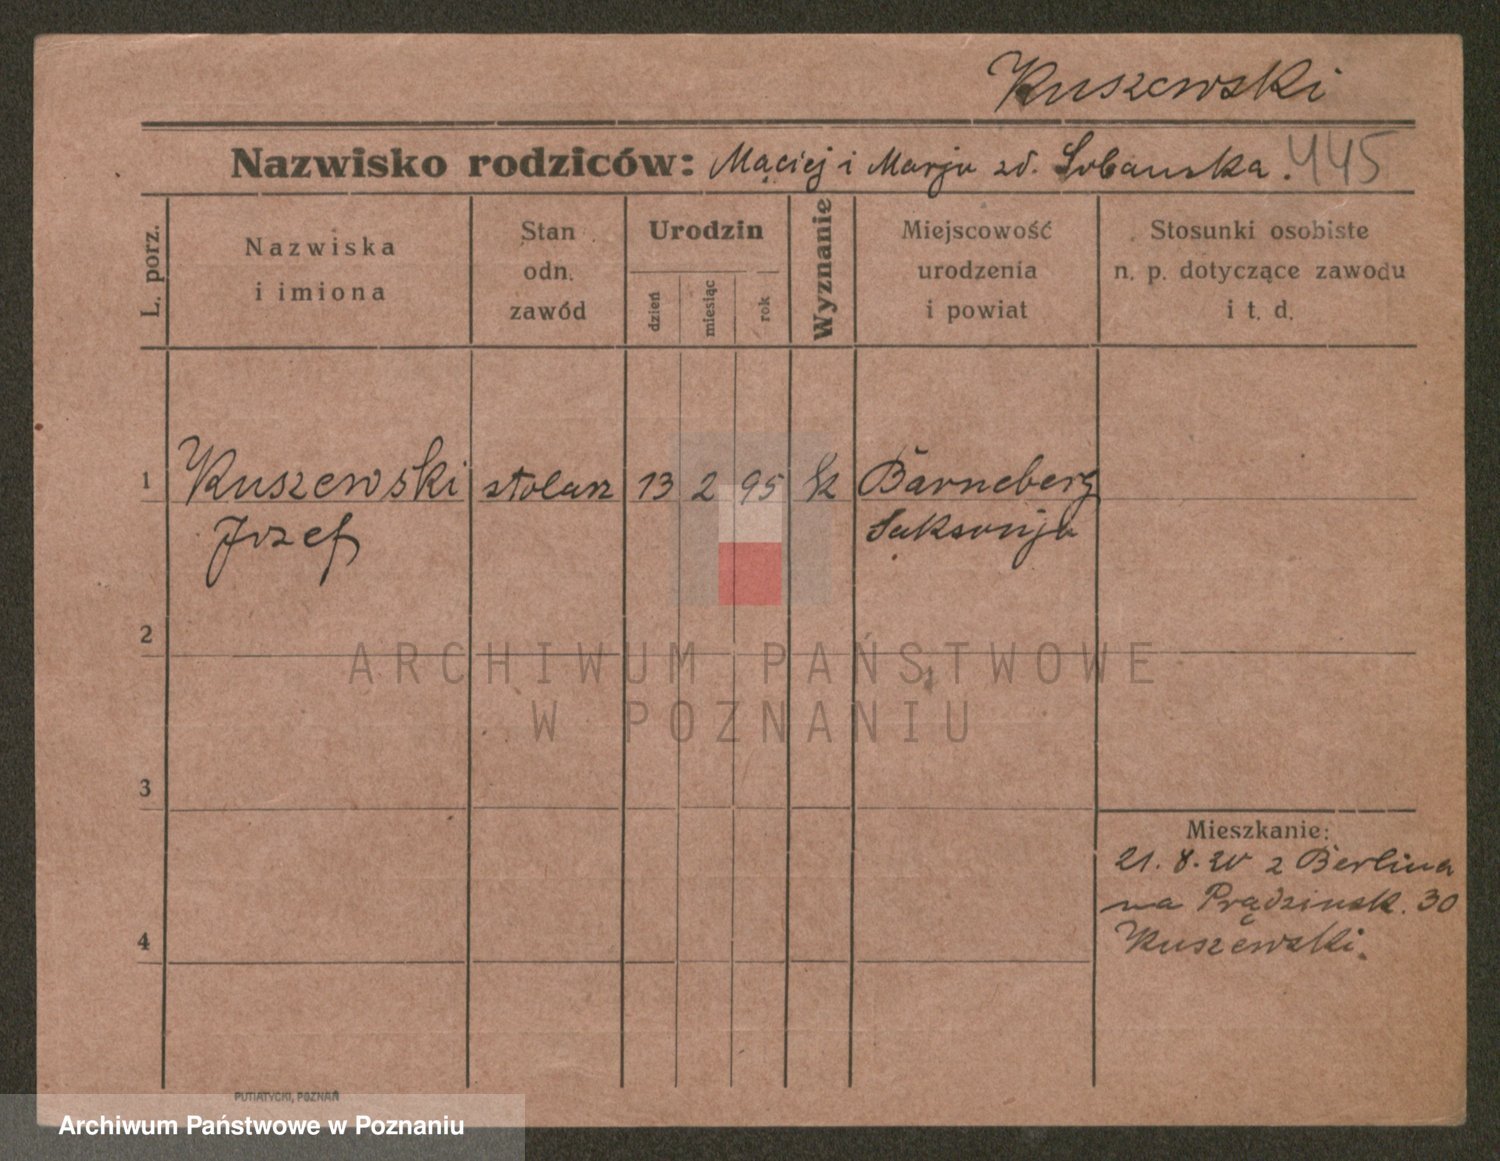 Kuszewski
Nazwisko rodziców: Maciej i Marja zd. Sobańska. 445
L. porz.
Nazwiska
i imiona
Stan
odn.
zawód
Urodzin
dzień
miesiąc
rok
Wyznanie
Miejscowość
urodzenia
i powiat
Stosunki osobiste
n. p. dotyczące zawodu
i t. d.
1 Kuszewski stolarz 13 2 95 Bärneberg
Józef Saksonja
2
ARCHIWUM PAŃSTWOWE
W POZNANIU
3
Mieszkanie:
21. 8. 20 z Berlina
na Prądzińsk. 30
4 Kuszewski.
PUTIATYCKI, POZNAŃ
Archiwum Państwowe w Poznaniu